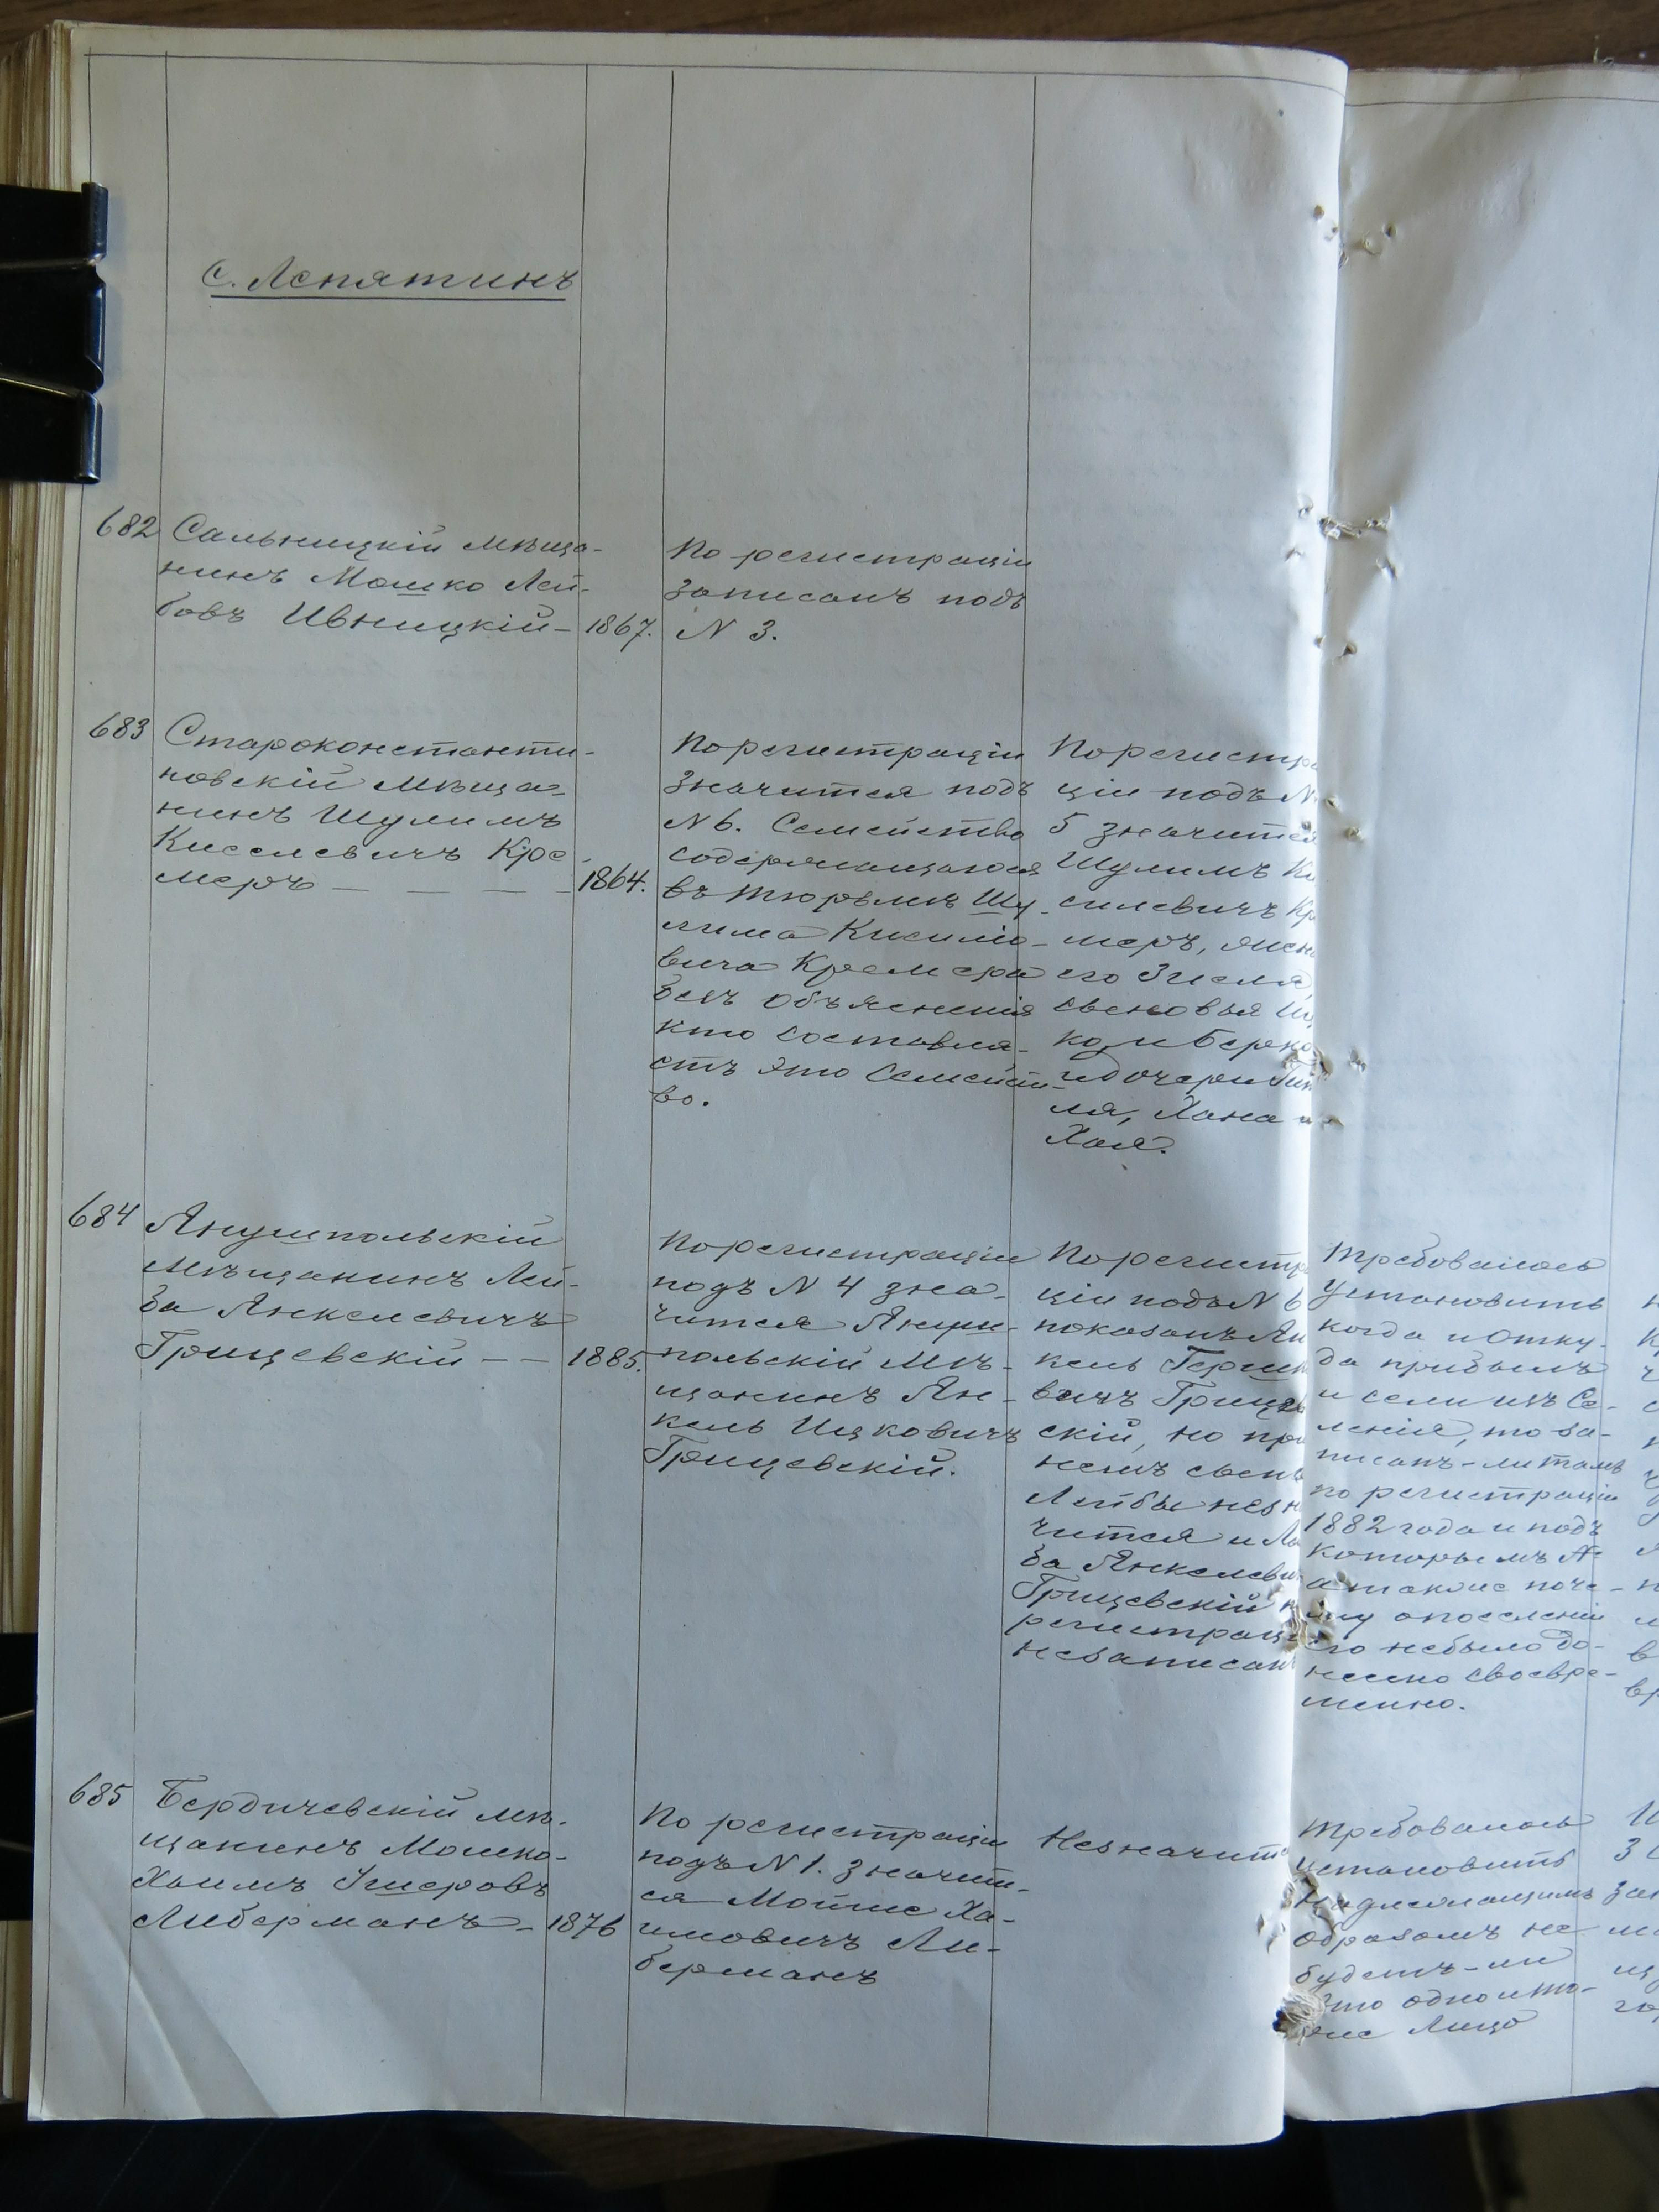 с. Лопятинъ
682
Сальницкій мѣща-
нинъ Мошко Лей-
бовъ Ивницкій - 1867.
По регистраціи
записанъ подъ
N 3.
683
Староконстанти-
новскій мѣща-
нинъ Шулимъ
Киселевичъ Кре-
меръ - - - - 1864.
По регистраціи
значится подъ
N 6. Семейство
содержащагося
въ тюрьмѣ Шу-
лима Кисилiо-
вича Кремера
безъ объясненія
кто составля-
етъ это семейст-
во.
По регистра
ціи подъ N
5 значится
Шулимъ Ки
силевичъ Кр
меръ, жена
его Зисля,
сыновья
ко и Берко
и дочери
ля, Хана и
Хая.
684
Янушпольскій
мѣщанинъ Лей-
ба Янкелевичъ
Грицевскій - - 1885.
По регистраціи
подъ N 4 зна-
чится Януш-
польскій мѣ-
щанинъ Ян-
кель Ицковичъ
Грицевскій.
По регистра
ціи подъ N 6
показанъ Ян
кель Герш
вичъ Грицев
скій, но при
немъ сынъ
Лейбы незн
чится и Ле
ба Янкелеви
Грицевскій
регистраці
незаписанъ
Требовалось
установить
когда и отку-
да прибылъ
и если изъ се-
ленія, то за-
писанъ-ли тамъ
по регистраціи
1882 года и подъ
которымъ N
а также поче-
му о поселеніи
его небыло до-
несено своевре-
менно.
685
Бердичевскій мѣ-
щанинъ Мошко-
Хаимъ Ушеровъ
Либерманъ - 1876
По регистраціи
подъ N 1. значит-
ся Мойше Ха-
имовичъ Ли-
берманъ
Незначит
Требовалось
установить
надлежащимъ
образомъ не
будетъ-ли
это одно и то-
же лицо